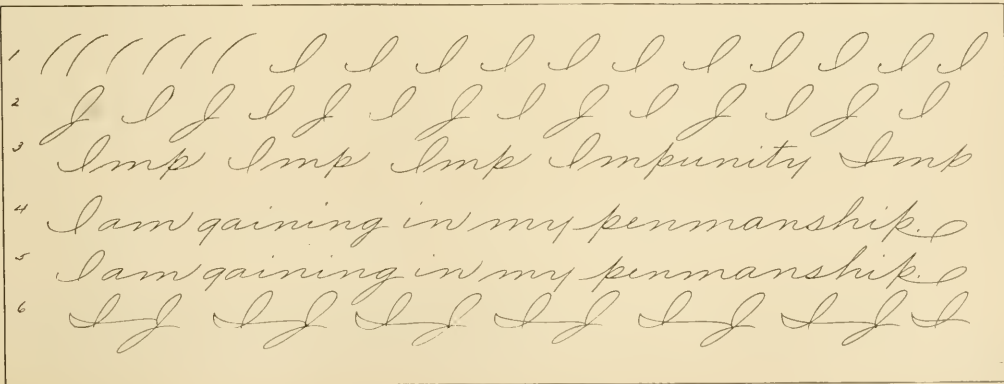 1 I I I I I I I I I I I
2 J I J I J I J I J I J I J I
3 Imp Imp Imp Impunity Imp
4 I am gaining in my penmanship.
5 I am gaining in my penmanship.
6 I J I J I J I J I J I J I